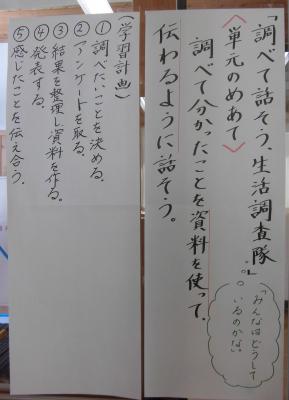 「調べて話そう、生活調査隊」
「みんなはどうして
いるのかな。」
〈単元のめあて〉
調べて分かったことを資料を使って、
伝わるように話そう。
(学習計画)
①調べたいことを決める。
②アンケートを取る。
③結果を整理し資料を作る。
④発表する。
⑤感じたことを伝え合う。